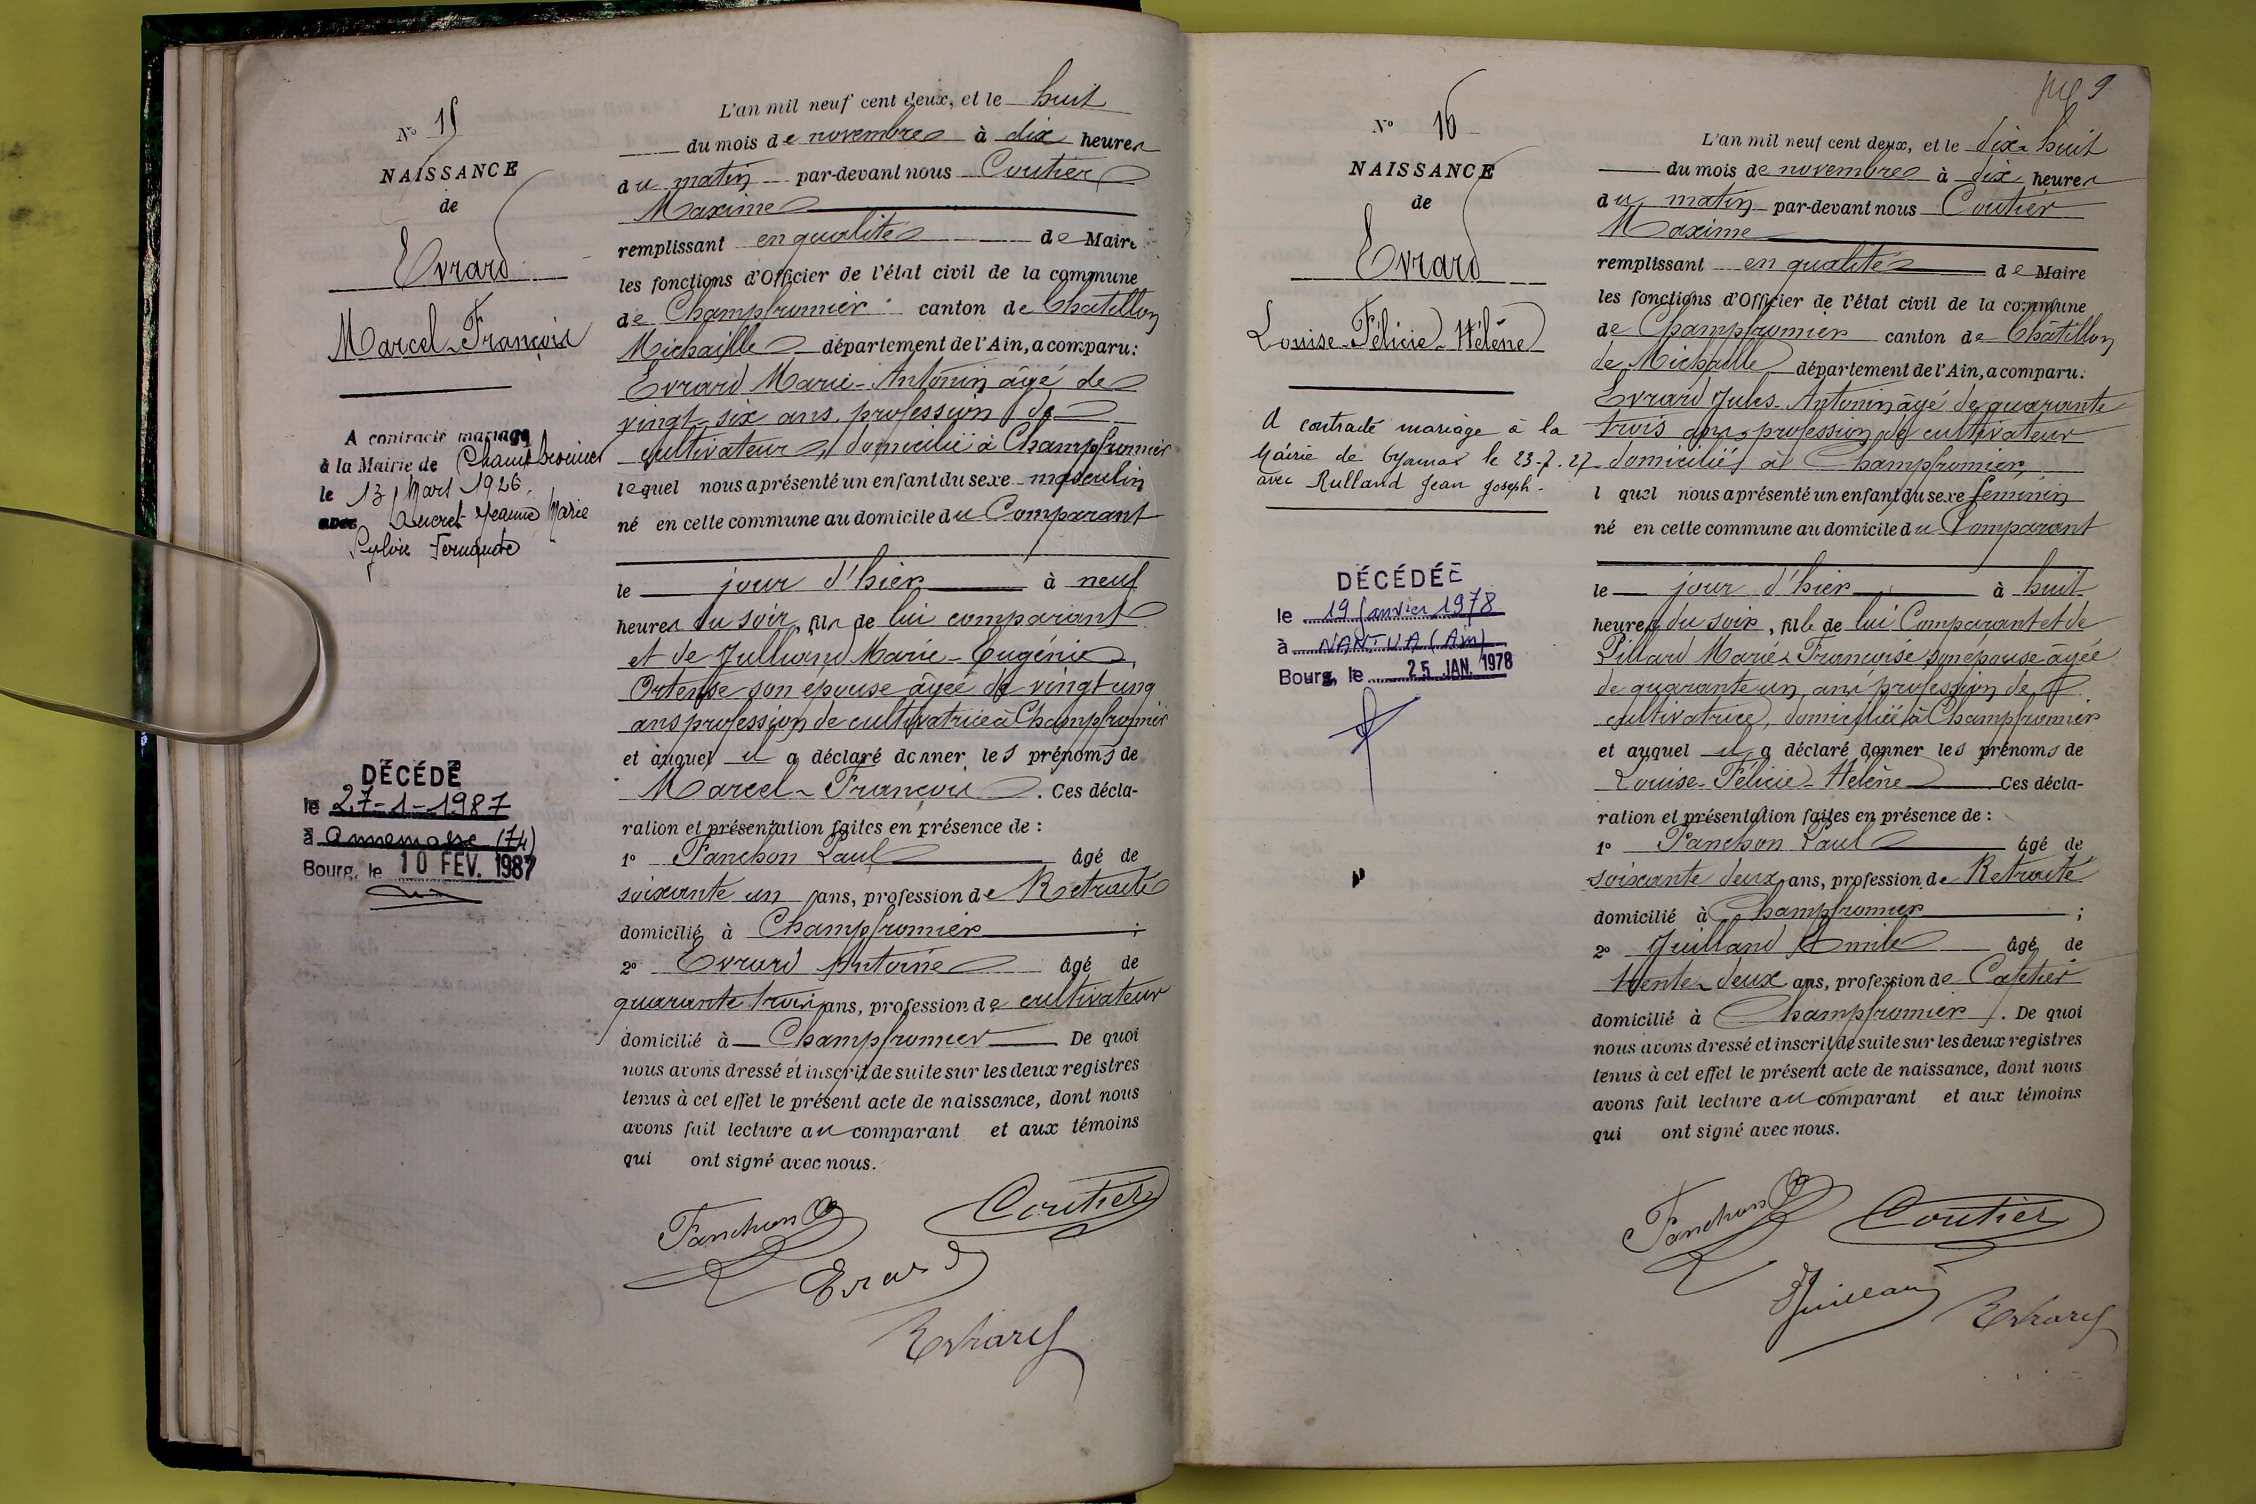 N° 15
NAISSANCE
de
Evrard
Marcel-François
A contracté mariage
à la Mairie de Champfromier
le 13 Mars 1926
avec Ducret Jeanne Marie
Sylvie Fernande
DÉCÉDÉ
le 27-1-1987
à annemasse (74)
Bourg, le 10 FEV. 1987
L'an mil neuf cent deux, et le huit
du mois de novembre à dix heures
du matin par-devant nous Coutier
Maxime
remplissant en qualité de Maire
les fonctions d'Officier de l'état civil de la commune
de Champfromier canton de Chatillon
Michaille département de l'Ain, a comparu:
Evrard Marie-Antonin âgé de
vingt-six ans, profession de
cultivateur domicilié à Champfromier
lequel nous a présenté un enfant du sexe masculin
né en cette commune au domicile du Comparant
le jour d'hier à neuf
heures du soir, fils de lui comparant
et de Julliand Marie-Eugénie
Ortense son épouse âgée de vingt ung
ans profession de cultivatrice à Champfromier
et auquel il a déclaré donner les prénoms de
Marcel-François. Ces décla-
ration et présentation faites en présence de :
1° Fanchon Paul âgé de
soixante un ans, profession de Retraité
domicilié à Champfromier ;
2° Evrard Antoine âgé de
quarante trois ans, profession de cultivateur
domicilié à Champfromier De quoi
nous avons dressé et inscrit de suite sur les deux registres
tenus à cet effet le présent acte de naissance, dont nous
avons fait lecture au comparant et aux témoins
qui ont signé avec nous.
Fanchon Coutier
Evrard
Evrard
9
N° 16
NAISSANCE
de
Evrard
Louise-Félicie-Hélène
A contracté mariage à la
Mairie de Oyonnax le 23-7-27
avec Rulland Jean Joseph.
DÉCÉDÉE
le 19 Janvier 1978
à NANTUA (Ain)
Bourg, le 25 JAN. 1978
L'an mil neuf cent deux, et le dix-huit
du mois de novembre à dix heures
du matin par-devant nous Coutier
Maxime
remplissant en qualité de Maire
les fonctions d'Officier de l'état civil de la commune
de Champfromier canton de Châtillon
de Michaille département de l'Ain, a comparu:
Evrard Jules-Antonin âgé de quarante
trois ans, profession de cultivateur
domicilié à Champfromier
l quel nous a présenté un enfant du sexe feminin
né en cette commune au domicile du Comparant
le jour d'hier à huit
heures du soir, fille de lui Comparant et de
Pillard Marie-Françoise son épouse âgée
de quarante un ans profession de
cultivatrice, domiciliée à Champfromier
et auquel il a déclaré donner les prénoms de
Louise-Félicie-Hélène Ces décla-
ration et présentation faites en présence de :
1° Fanchon Paul âgé de
soixante deux ans, profession de Retraité
domicilié à Champfromier ;
2° Juilland Emile âgé de
trente-deux ans, profession de Cafetier
domicilié à Champfromier. De quoi
nous avons dressé et inscrit de suite sur les deux registres
tenus à cet effet le présent acte de naissance, dont nous
avons fait lecture au comparant et aux témoins
qui ont signé avec nous.
Fanchon Coutier
Juilland Evrard